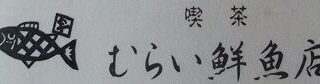 喫茶
むらい鮮魚店